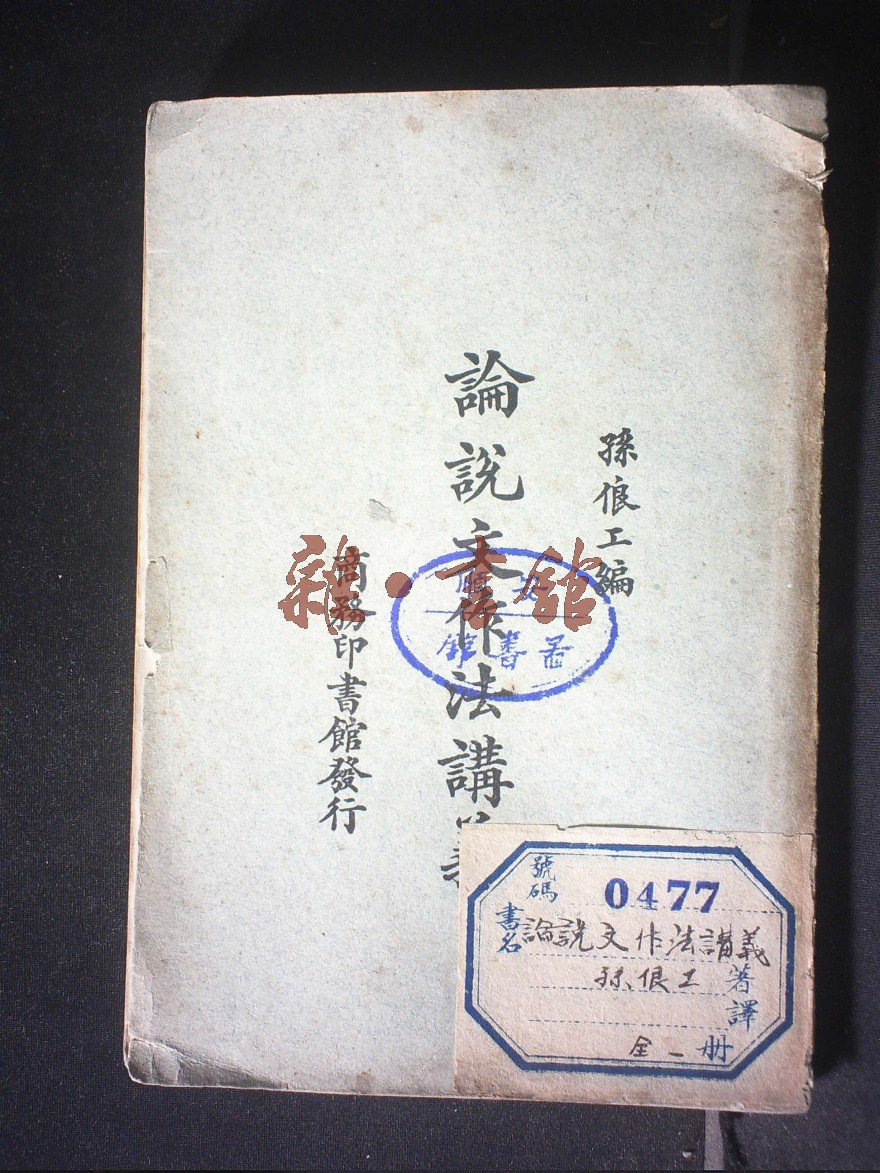 孫俍工編
論說文作法講義
商務印書館發行
雜·書館
書館
號碼 0477
書名 論説文作法講義
孫俍工 著譯
全一册